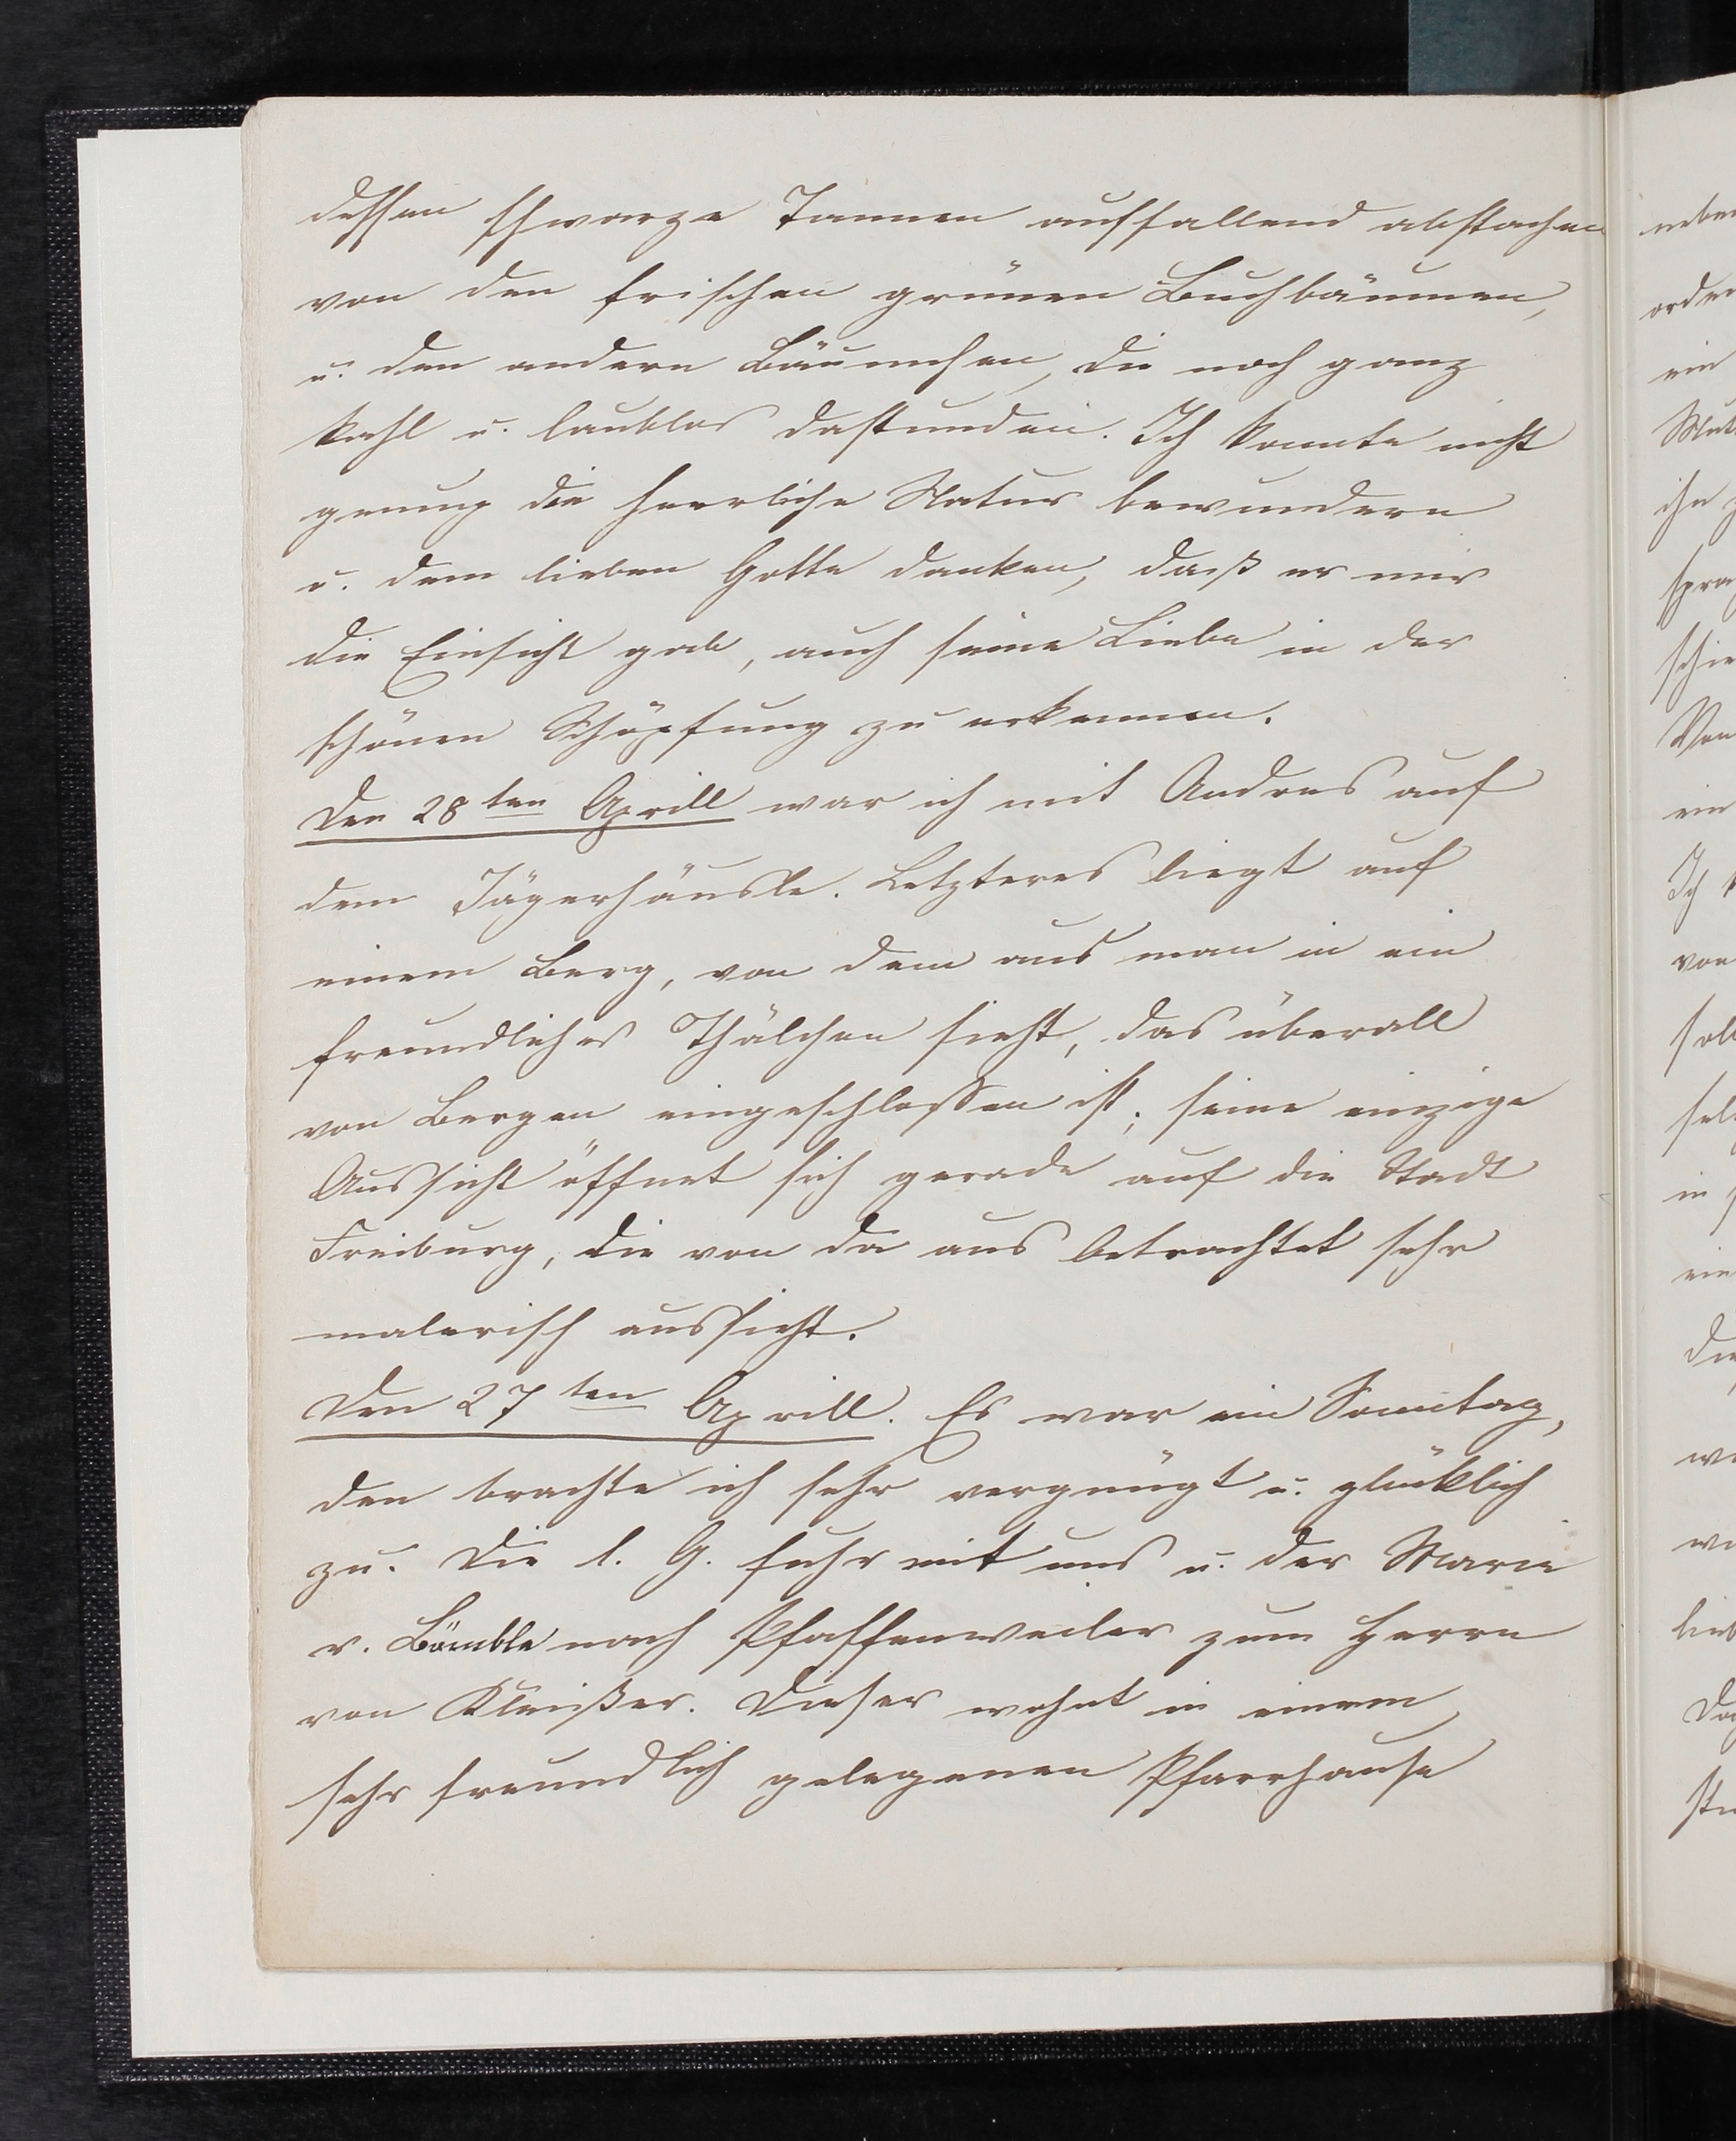 dessen schwarze Tannen auffallend abstachen
von den frischen grünen Buchbäumen,
u. den andern Bäumchen, die noch ganz
kahl u. laublos dastunden. Ich konnte nicht
genug die herrliche Natur bewundern
u. dem lieben Gotte danken, daß er mir
die Einsicht gab, auch seine Liebe in der
schönen Schöpfung zu erkennen.
Den 28ten Aprill war ich mit Andres auf
dem Jägerhäusle. Letzteres liegt auf
einem Berg, von dem aus man in ein
freundliches Thälchen sieht, das überall
von Bergen eingeschlossen ist; seine einzige
Aussicht öffnet sich gerade auf die Stadt
Freiburg, die von da aus betrachtet sehr
malerisch aussieht.
Den 27ten Aprill. Es war ein Sonntag,
den brachte ich sehr vergnügt u. glücklich
zu. Die l. G. fuhr mit uns u. der Marie
v. Bömble nach Pfaffenweiler zum Herrn
von Kleißer. Dieser wohnt in einem
sehr freundlich gelegenen Pfarrhause
neben
ein
Ich
von
in